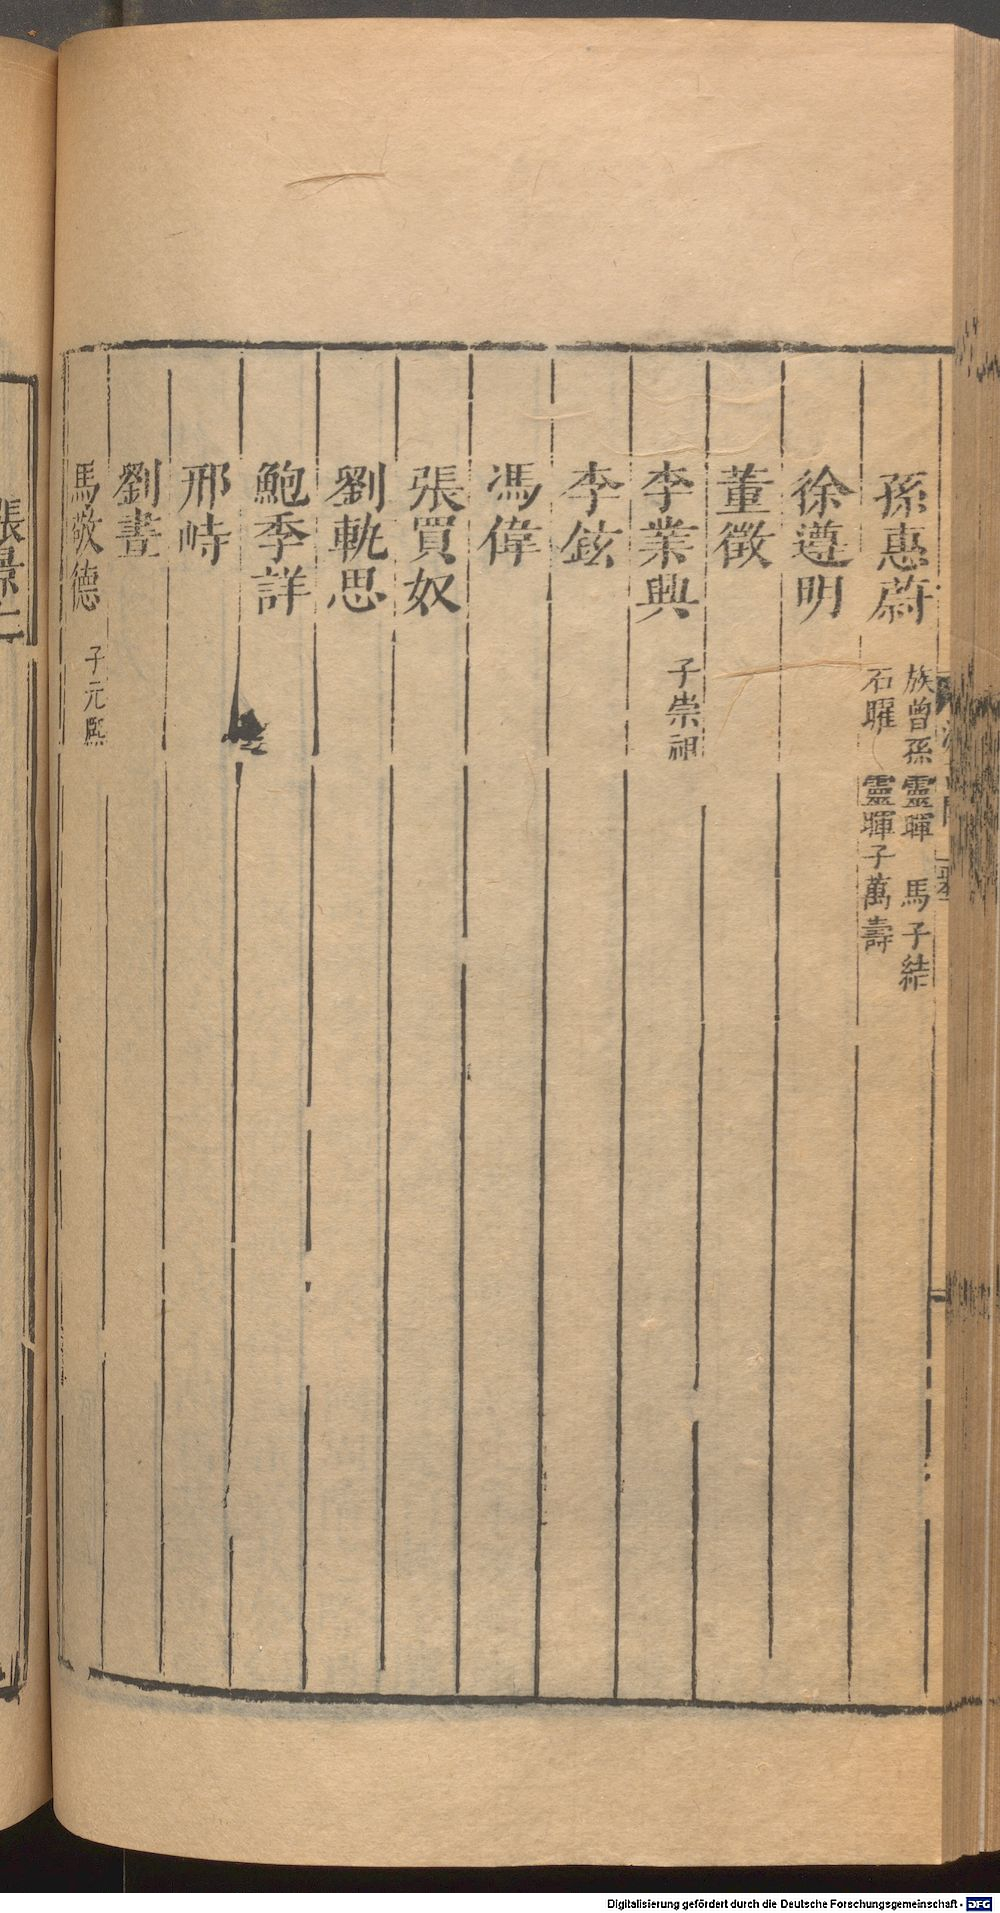 孫惠蔚
族曾孫靈暉 馬子結
石曜 靈暉子萬壽
徐遵明
董徵
李業興 子崇祖
李鉉
馮偉
張買奴
劉軌思
鮑季詳
邢峙
劉晝
馬敬德 子元熙
張景仁
Digitalisierung gefördert durch die Deutsche Forschungsgemeinschaft - DFG